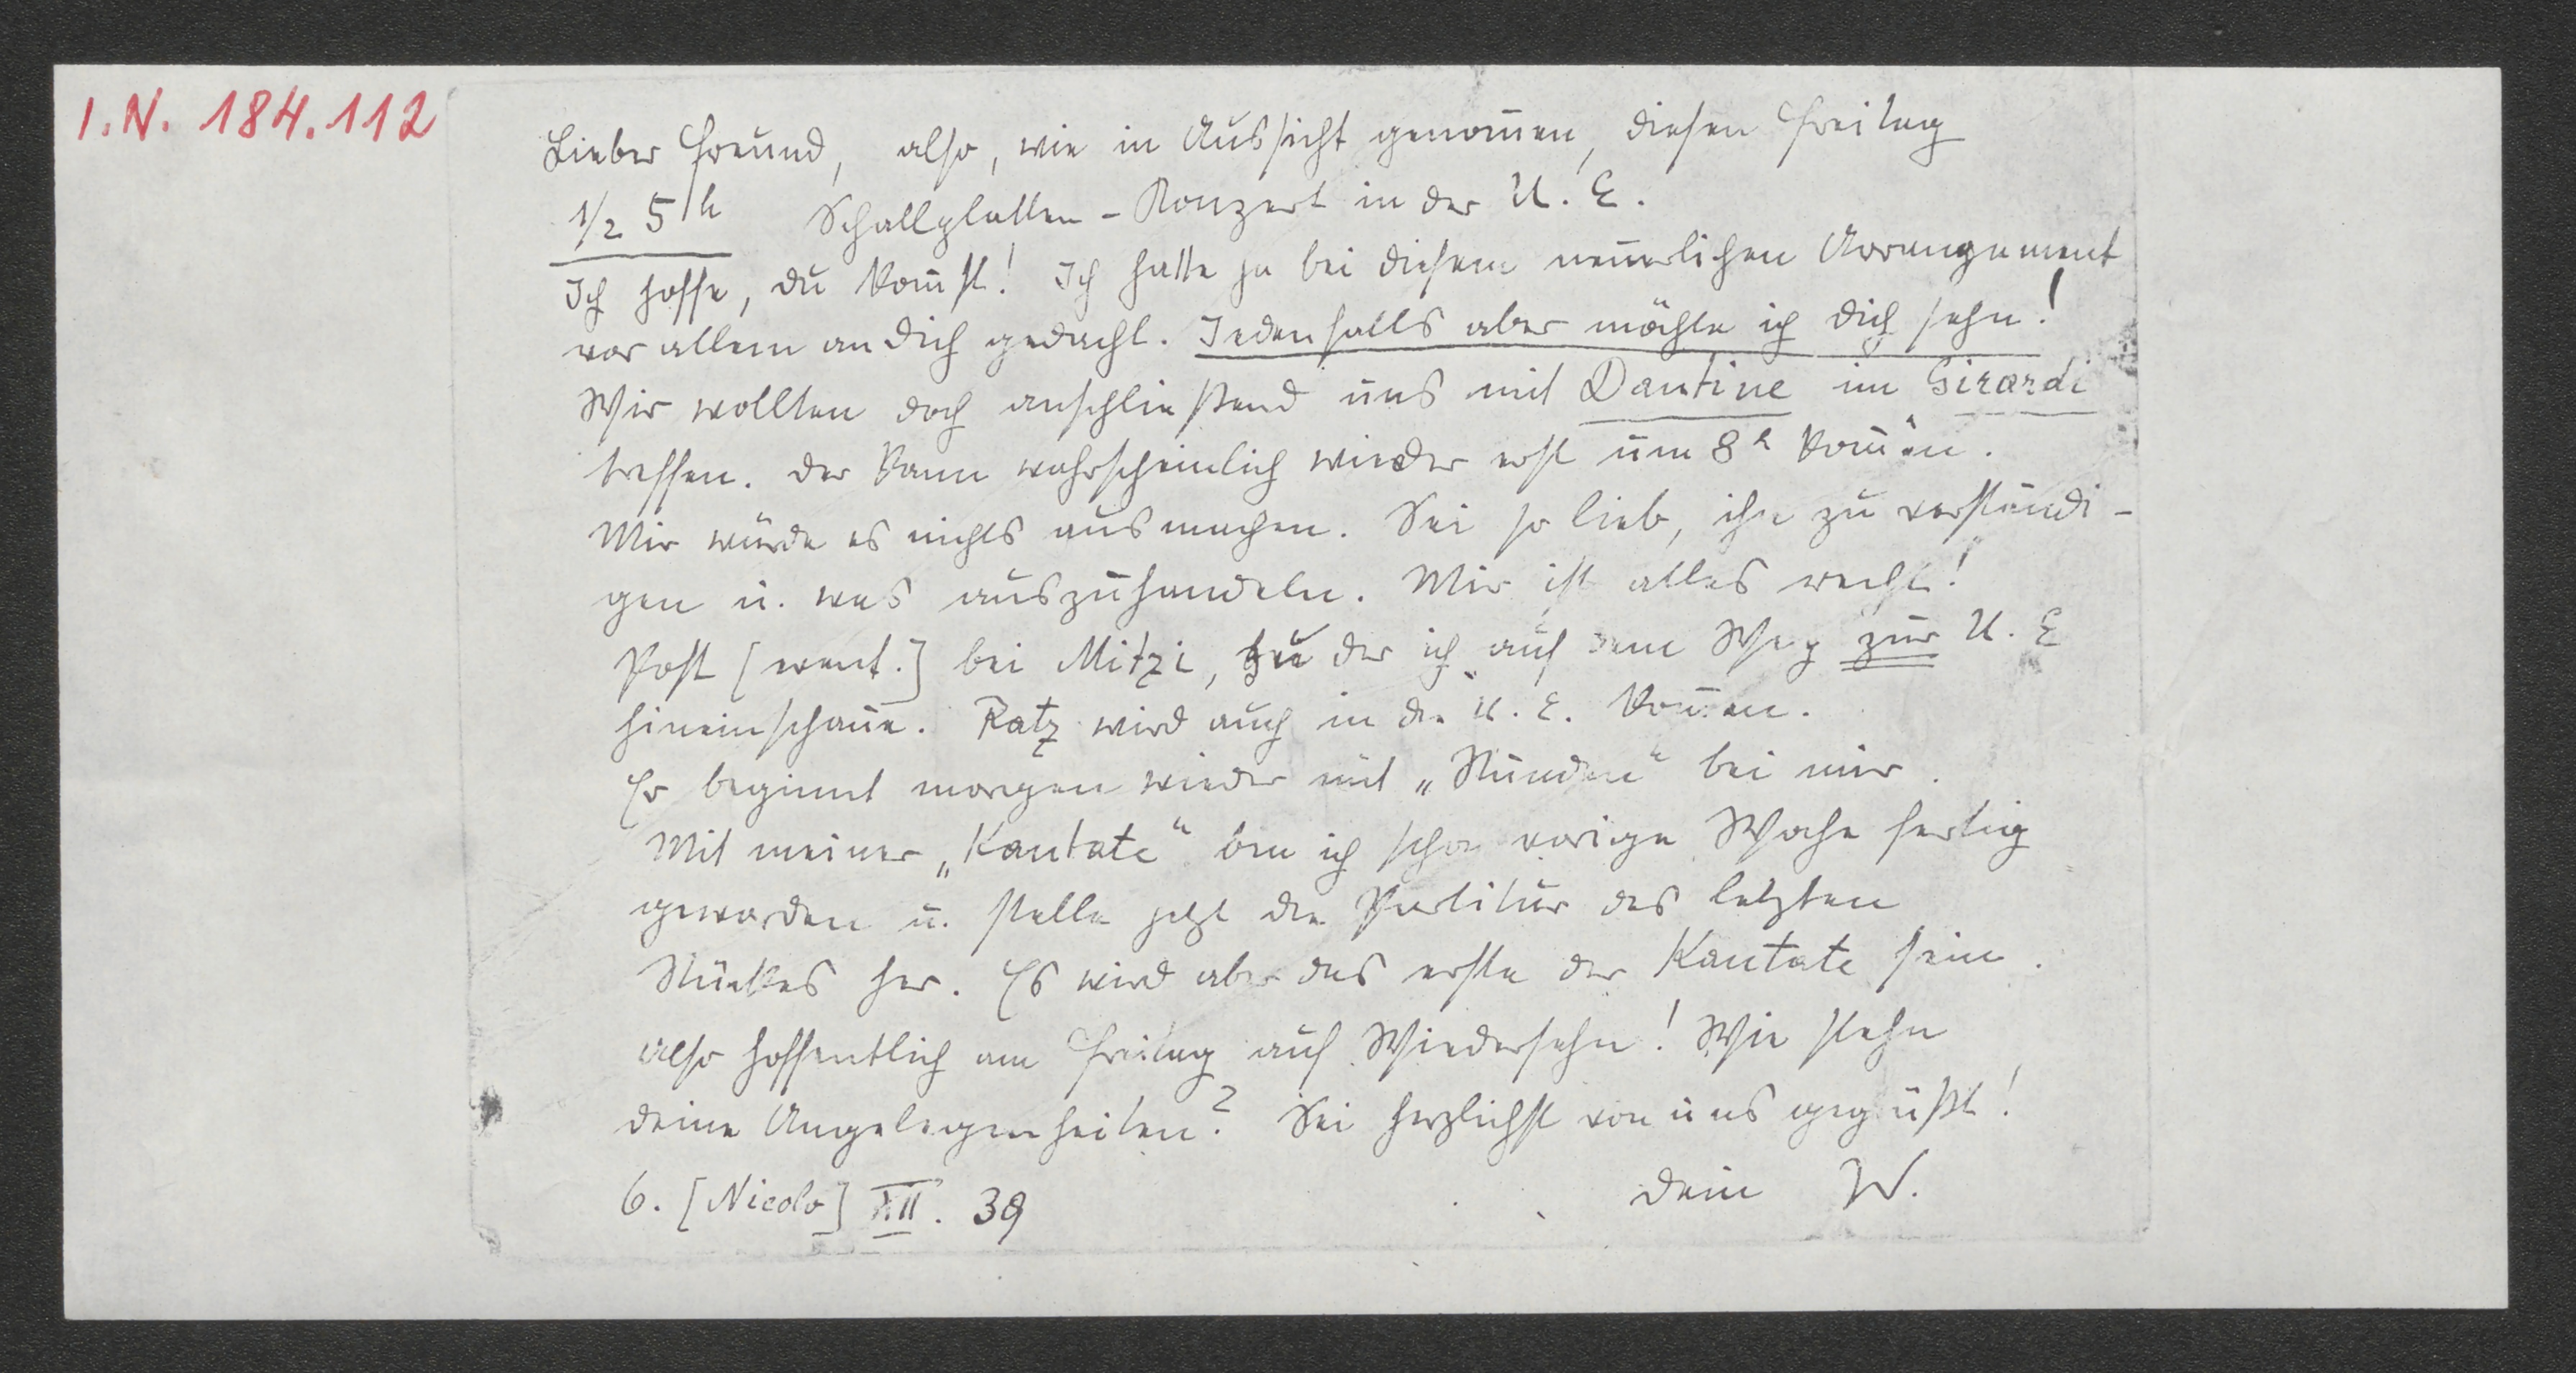 I.N. 184.112
Lieber Freund, also, wie in Aussicht genom̅en, diesen Freitag
1/2 5 h Schallplatten-Konzert in der U. E.
Ich hoffe, du kom̅st! Ich hatte ja bei diesem neuerlichen Arrangement
vor allem an dich gedacht. Jedenfalls aber möchte ich dich sehn!
Wir wollten doch anschließend uns mit Dantine im Girardi
treffen. Der kann wahrscheinlich wieder erst um 8h kom̅en.
Mir würde es nichts ausmachen. Sei so lieb, ihn zu verständi-
gen u. was auszuhandeln. Mir ist alles recht!
Post [event.] bei Mitzi, zu der ich auf dem Weg zur U. E
hineinschaue. Ratz wird auch in d. U. E. kom̅en.
Er beginnt morgen wieder mit „Stunden“ bei mir.
Mit meiner „Kantate“ bin ich schon vorige Woche fertig
geworden u. stelle jetzt die Partitur des letzten
Stückes her. Es wird aber das erste der Kantate sein.
Also hoffentlich am Freitag auf Wiedersehn! Wie stehn
deine Angelegenheiten? Sei herzlichst von uns gegrüßt!
6. [Nicolo] XII. 39 Dein W.